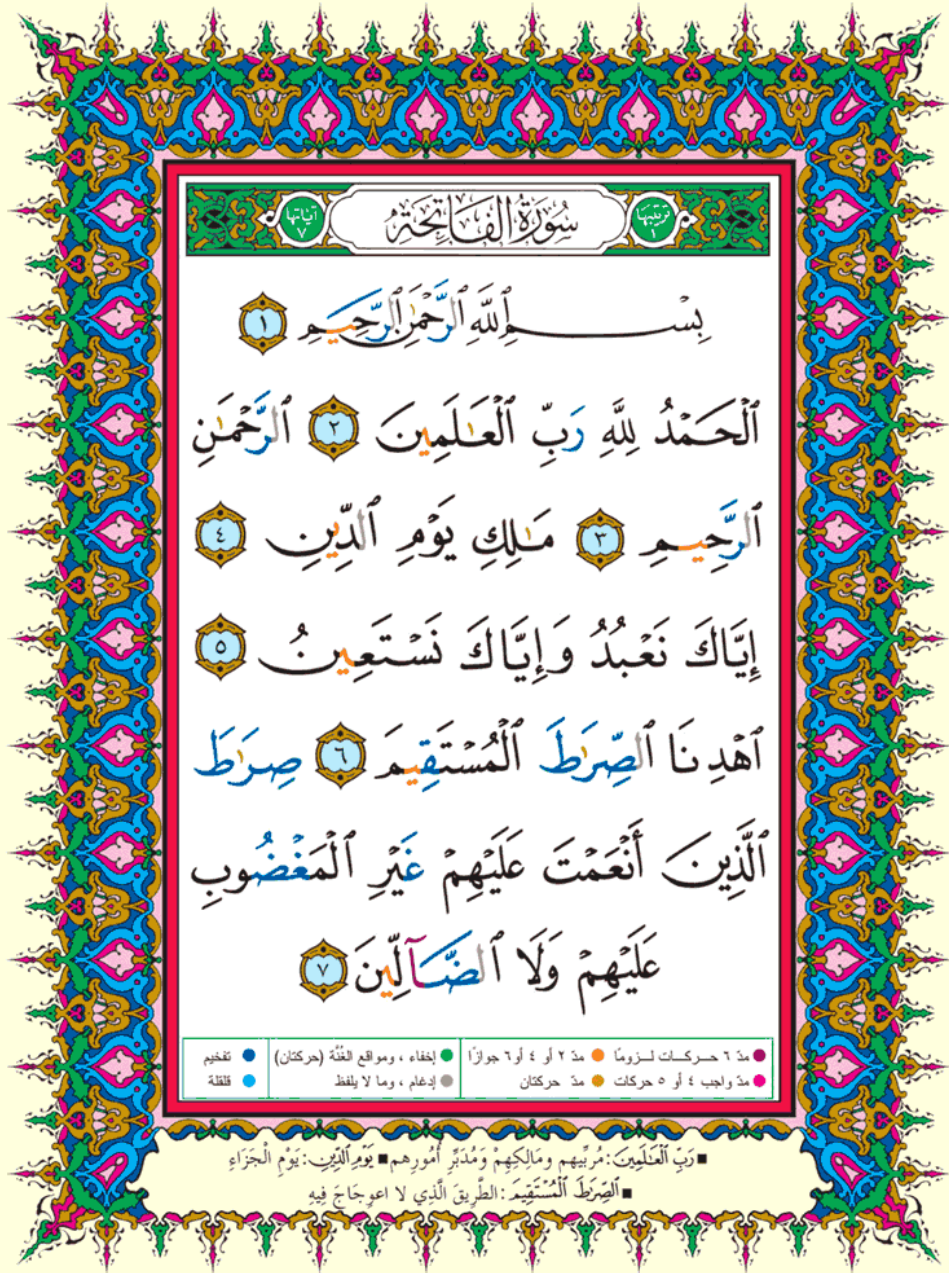 ترتيبها ١ سُورَةُ الفَاتِحَةِ آيَاتُهَا ٧
بِسْمِ ٱللَّهِ ٱلرَّحْمَٰنِ ٱلرَّحِيمِ ١
ٱلْحَمْدُ لِلَّهِ رَبِّ ٱلْعَٰلَمِينَ ٢ ٱلرَّحْمَٰنِ
ٱلرَّحِيمِ ٣ مَٰلِكِ يَوْمِ ٱلدِّينِ ٤
إِيَّاكَ نَعْبُدُ وَإِيَّاكَ نَسْتَعِينُ ٥
ٱهْدِنَا ٱلصِّرَٰطَ ٱلْمُسْتَقِيمَ ٦ صِرَٰطَ
ٱلَّذِينَ أَنْعَمْتَ عَلَيْهِمْ غَيْرِ ٱلْمَغْضُوبِ
عَلَيْهِمْ وَلَا ٱلضَّآلِّينَ ٧
مدّ ٦ حـركــات لـزومًا مدّ ٢ أو ٤ أو ٦ جوازًا إخفاء ، ومواقع الغُنَّة (حركتان) تفخيم
مدّ واجب ٤ أو ٥ حركات مدّ حركتان إدغام ، وما لا يلفظ قلقلة
رَبِّ ٱلْعَٰلَمِينَ : مُرَبِّيهِم ومَالِكِهِمْ وَمُدَبِّرِ أُمُورِهِم يَوْمِ ٱلدِّينِ : يَوْمِ الْجَزَاءِ
ٱلصِّرَٰطَ ٱلْمُسْتَقِيمَ : الطَّرِيقَ الَّذِي لا اعوِجَاجَ فِيهِ